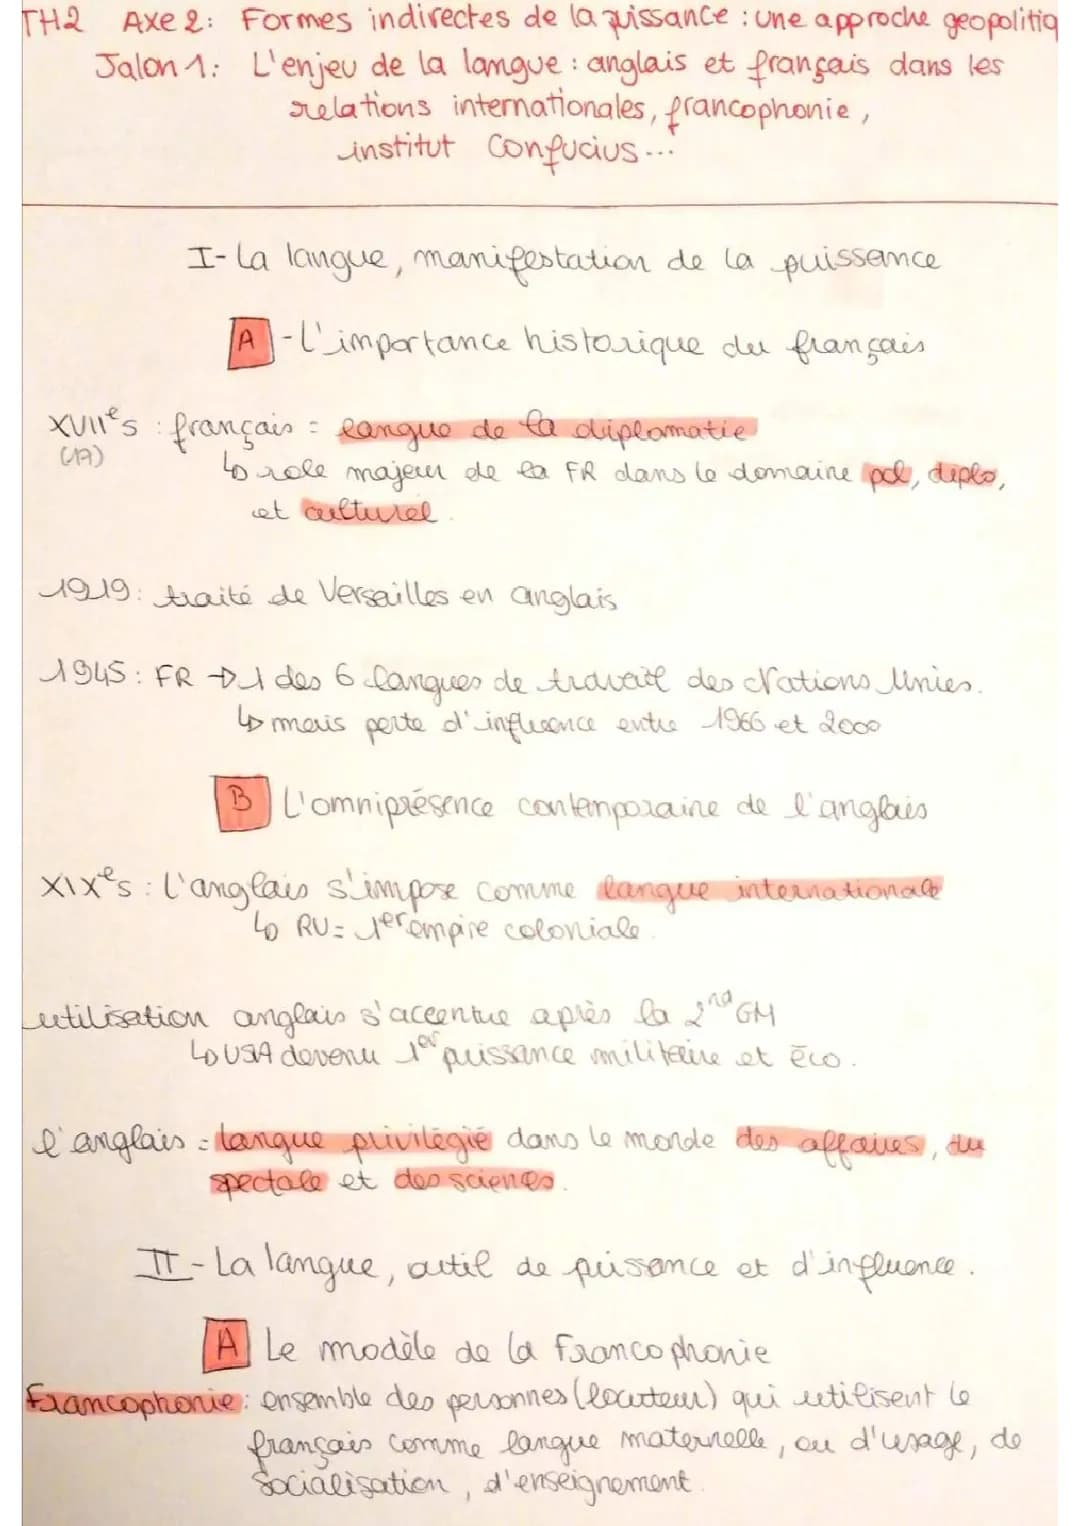 TH2 Axe 2: Formes indirectes de la puissance : une approche geopolitiq
Jalon 1: L'enjeu de la langue : anglais et français dans les
relations internationales, francophonie,
institut Confucius...
I- La langue, manifestation de la puissance
A - L'importance historique du français
XVIIes : français = langue de la diplomatie
(17)
↳ role majeur de la FR dans le domaine pol, diplo,
et culturel.
1919: traité de Versailles en anglais
1945: FR → 1 des 6 langues de travail des Nations Unies.
↳ mais perte d'influence entre 1966 et 2000
B L'omniprésence contemporaine de l'anglais
XIXes : l'anglais s'impose comme langue internationale
↳ RU = 1er empire coloniale.
utilisation anglais s'accentue après la 2nd GM
↳ USA devenu 1er puissance militaire et éco.
l'anglais = langue privilégié dans le monde des affaires, du
spectale et des sciences.
II - La langue, outil de puissance et d'influence.
A Le modèle de la Francophonie
Francophonie : ensemble des personnes (locuteur) qui utilisent le
français comme langue maternelle, ou d'usage, de
socialisation, d'enseignement.